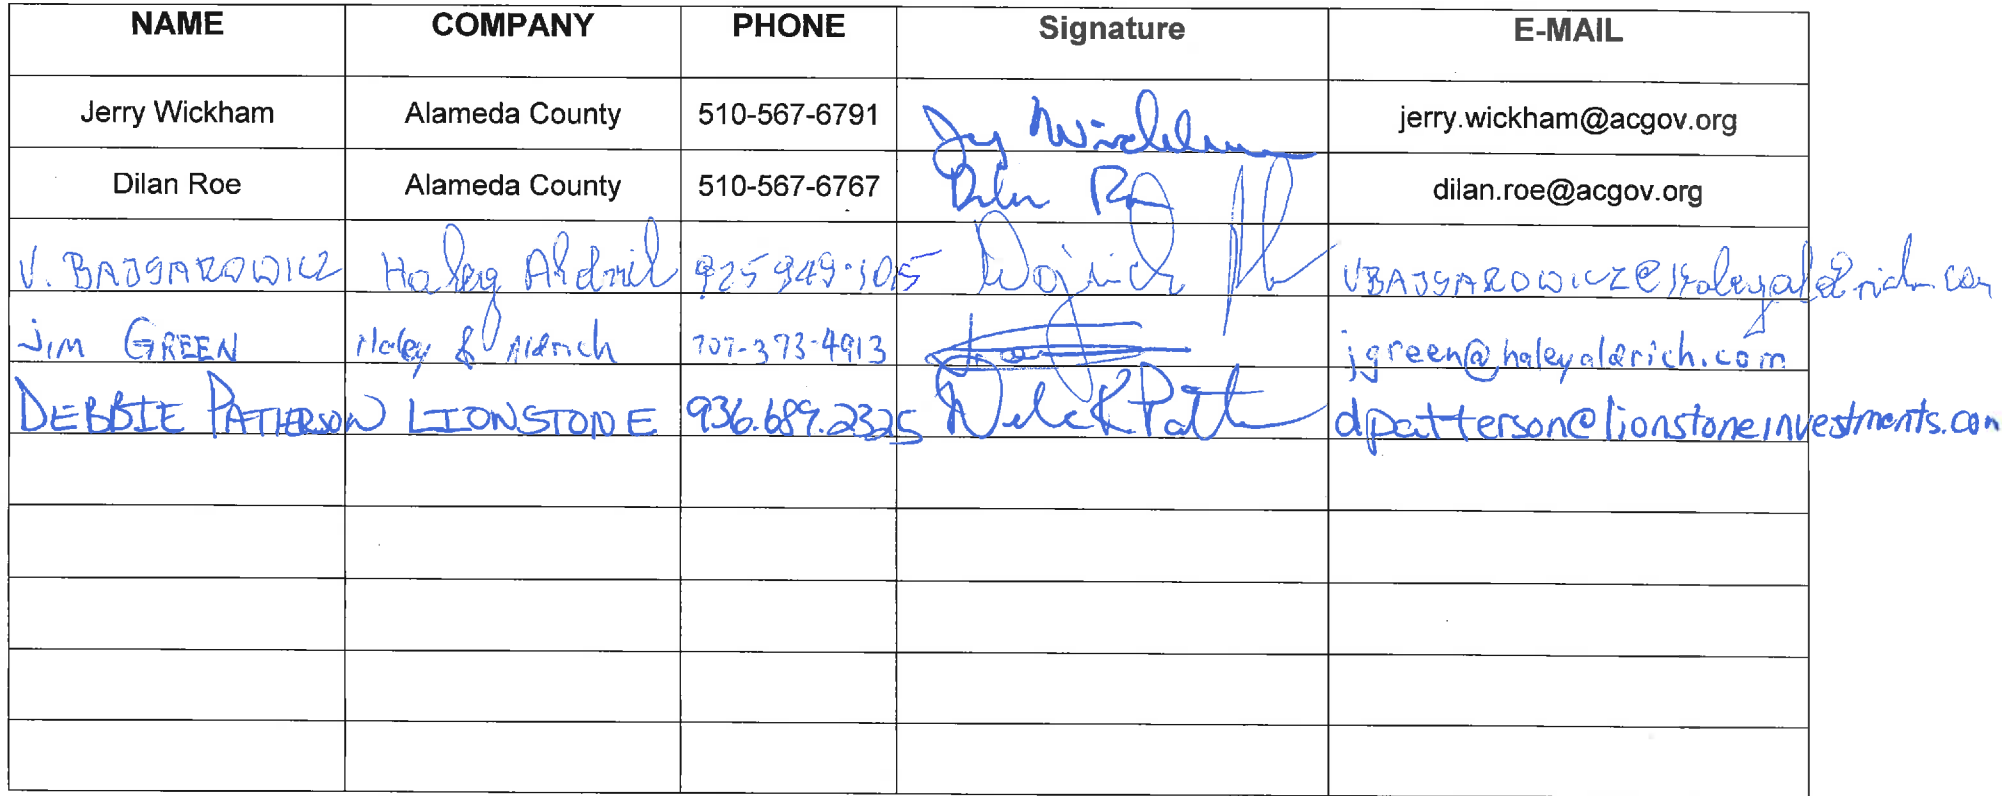 NAME COMPANY PHONE Signature E-MAIL
Jerry Wickham Alameda County 510-567-6791 jerry.wickham@acgov.org
Dilan Roe Alameda County 510-567-6767 Dilan Roe dilan.roe@acgov.org
V. BAJSAROWICZ Haley Aldrich 925 949-1015 VBAJSAROWICZ@Haleyaldrich.com
Jim GREEN Haley & Aldrich 707-373-4913 jgreen@haleyaldrich.com
DEBBIE PATTERSON LIONSTONE 936.689.2325 dpatterson@lionstoneinvestments.com